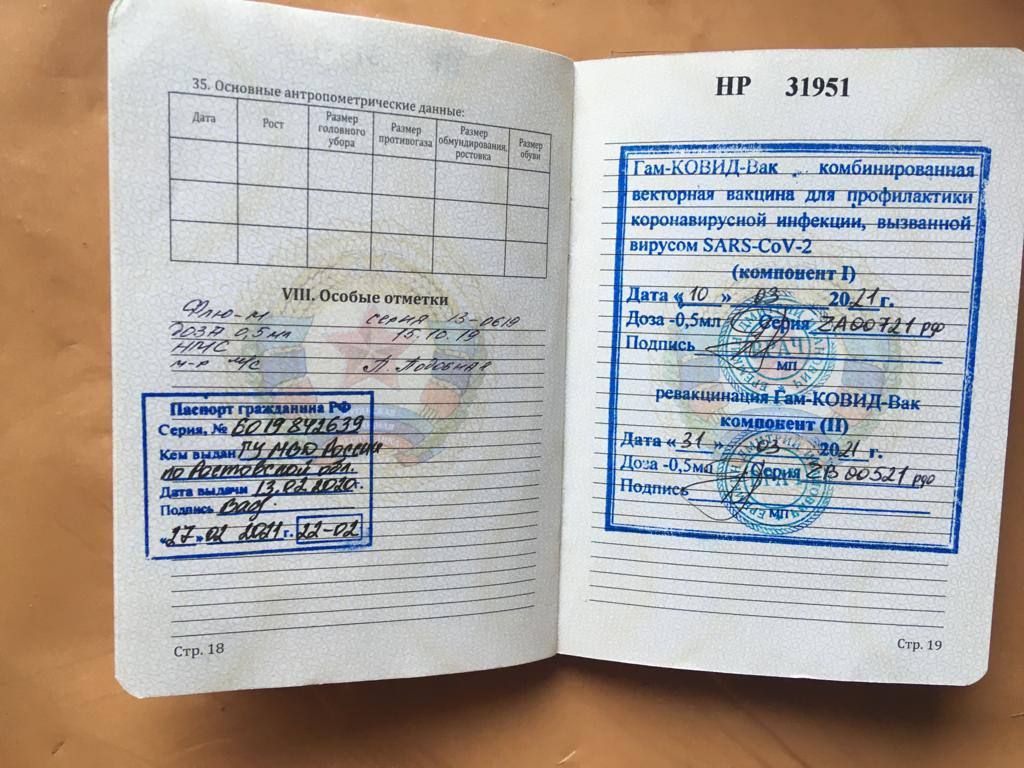 35. Основные антропометрические данные:
Дата Рост Размер головного убора Размер противогаза Размер обмундирования, ростовка Размер обуви
VIII. Особые отметки
Флю-М серия 13-0619
доза 0,5 мл 15.10.19
НМС
м-р м/с
Паспорт гражданина РФ
Серия, № 6019 842639
Кем выдан ГУ МВД России
по Ростовской обл.
Дата выдачи 13.02.2020г.
Подпись
«27» 02 2021 г. 22-02
Стр. 18
НР 31951
Гам-КОВИД-Вак комбинированная
векторная вакцина для профилактики
коронавирусной инфекции, вызванной
вирусом SARS-CoV-2
(компонент I)
Дата «10» 03 2021 г.
Доза -0,5мл Серия ZA00721 рф
Подпись
МП
ревакцинация Гам-КОВИД-Вак
компонент (II)
Дата «31» 03 2021 г.
Доза -0,5мл Серия ZB00521 рф
Подпись
МП
Стр. 19